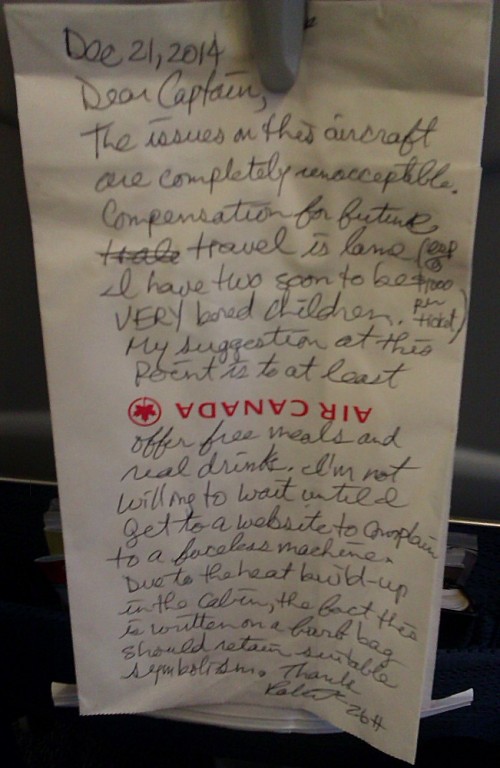 Dec 21, 2014
Dear Captain,
The issues on this aircraft
are completely unacceptible.
Compensation for future
travel is lame (esp
@
I have two soon to be $1000
per
VERY bored children. ticket)
My suggestion at this
Point is to at least
AIR CANADA
offer free meals and
real drinks. I'm not
willing to wait until I
get to a website to complain
to a faceless machine.
Due to the heat build-up
in the cabin, the fact this
is written on a barf bag
should retain suitable
symbolism. Thanks
Robert - 26H